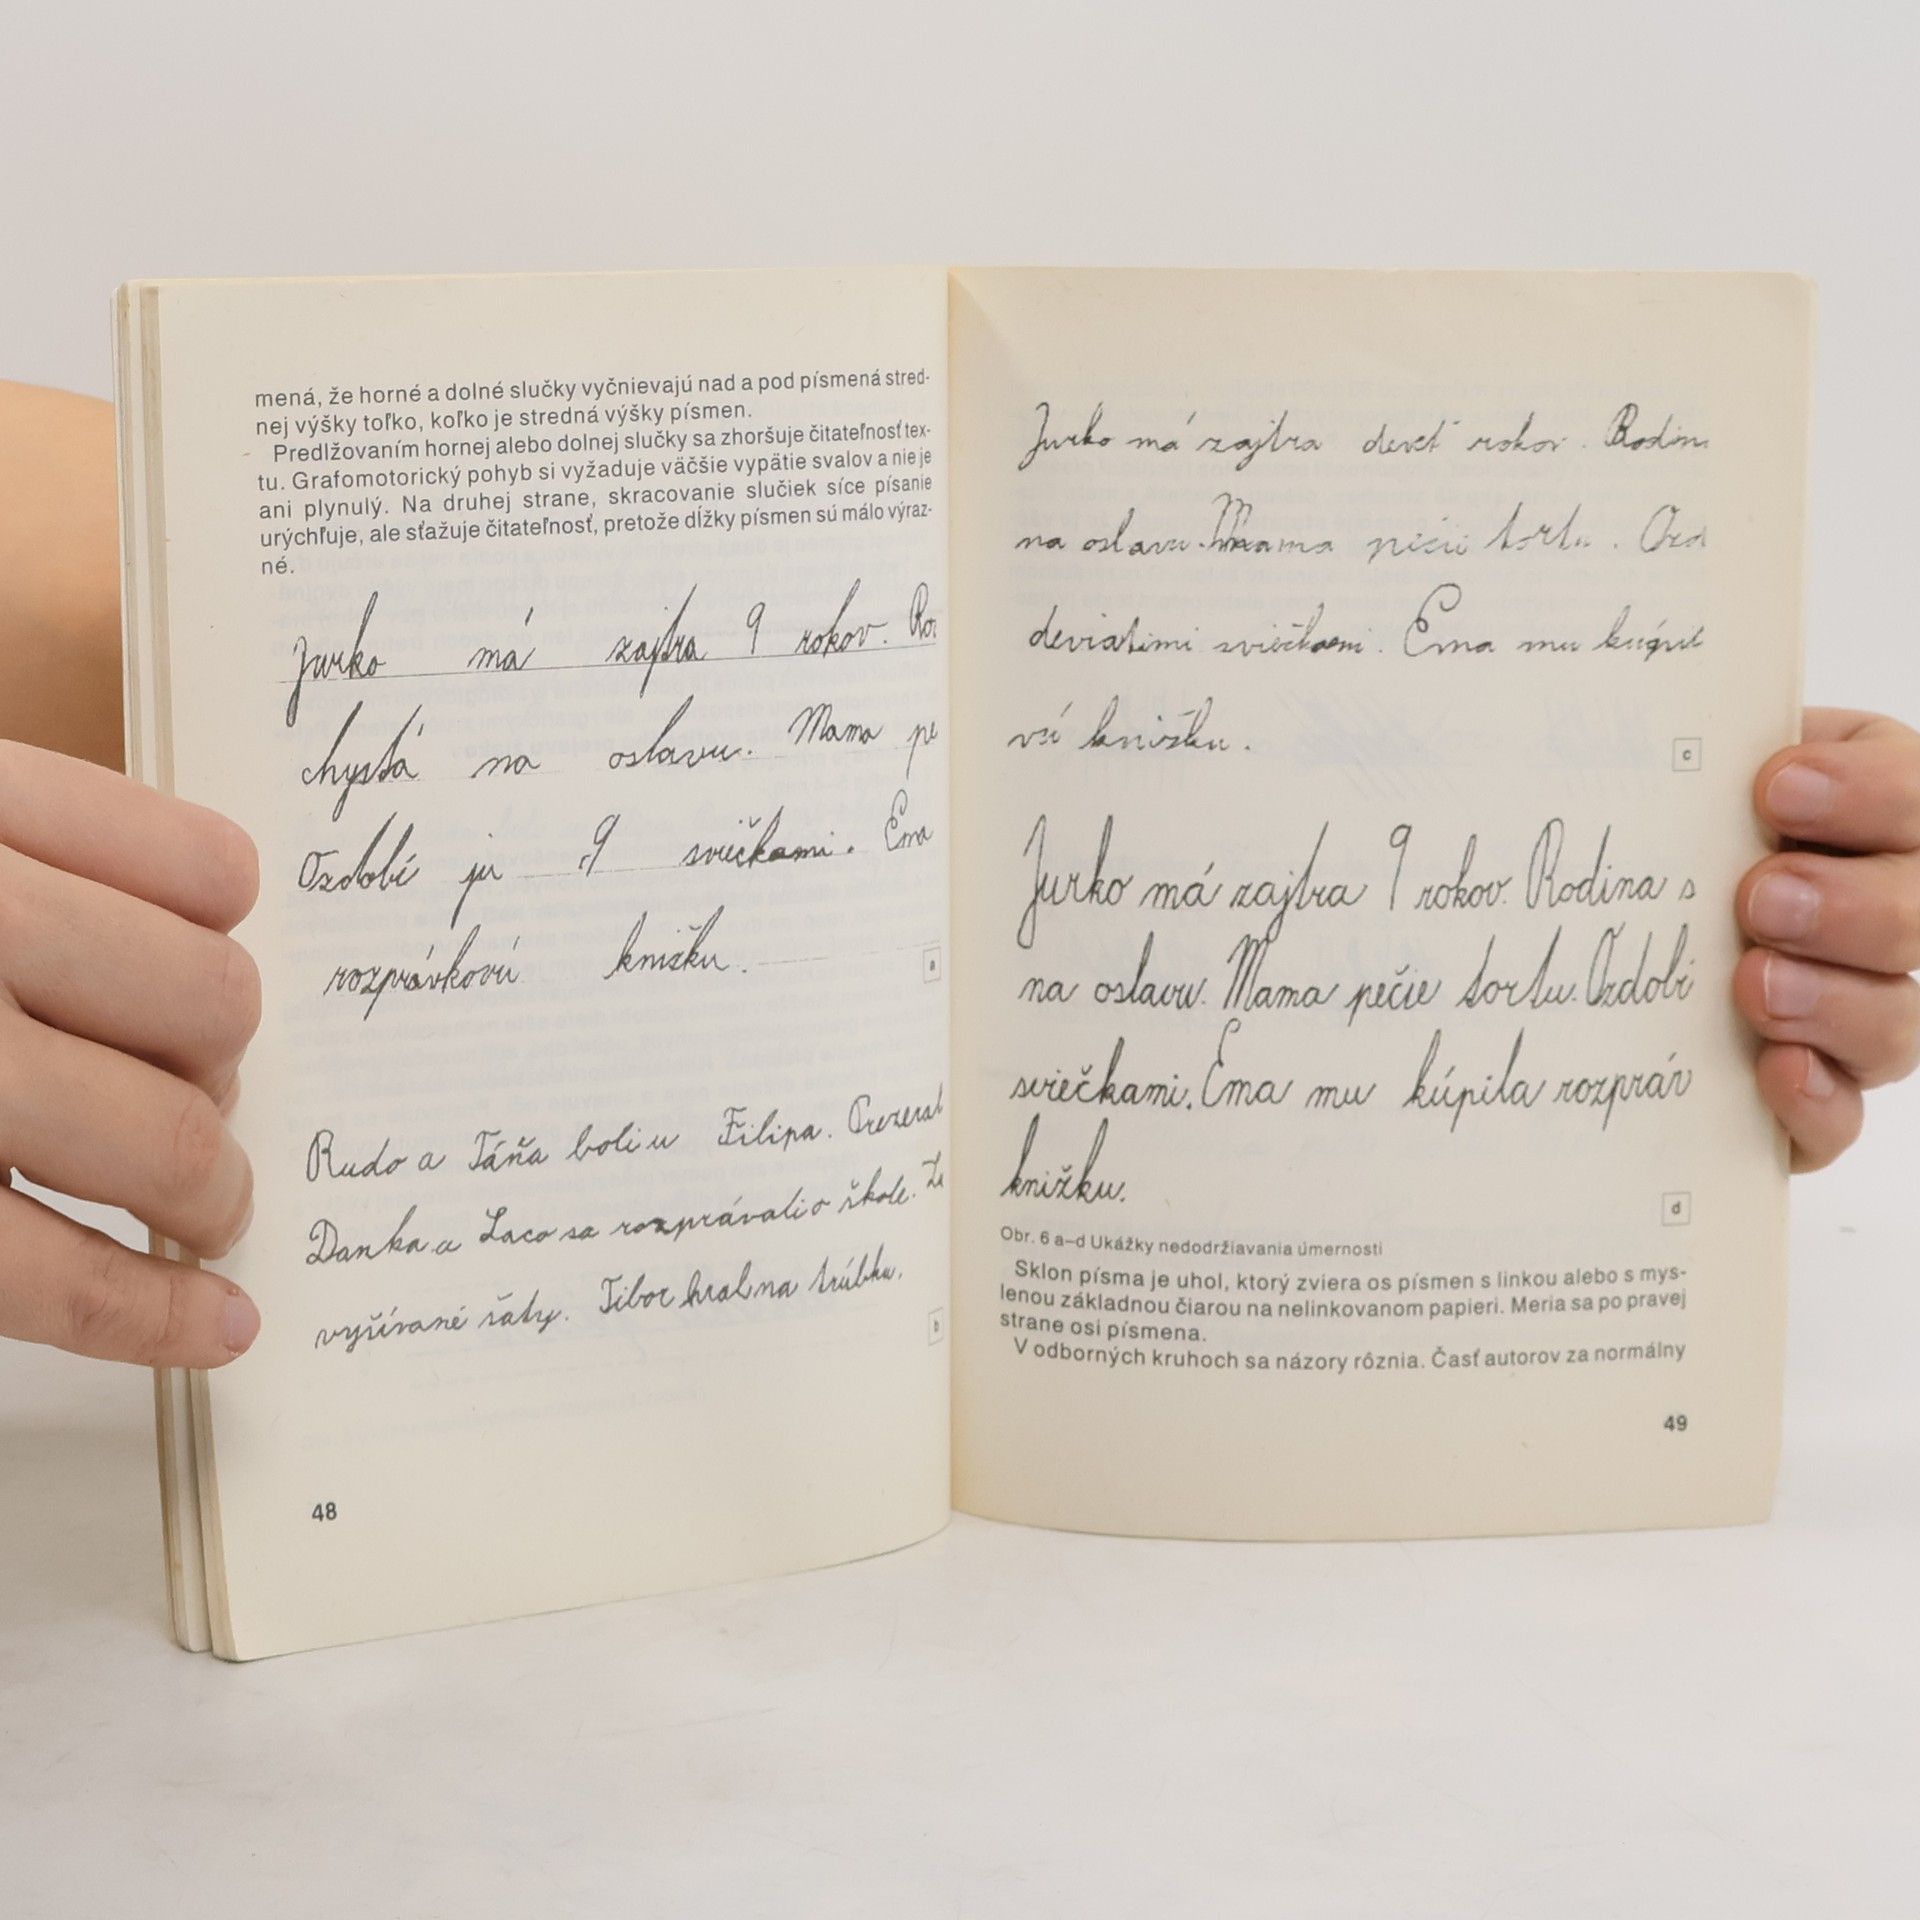 mená, že horné a dolné slučky vyčnievajú nad a pod písmená stred-
nej výšky toľko, koľko je stredná výšky písmen.
Predlžovaním hornej alebo dolnej slučky sa zhoršuje čitateľnosť tex-
tu. Grafomotorický pohyb si vyžaduje väčšie vypätie svalov a nie je
ani plynulý. Na druhej strane, skracovanie slučiek síce písanie
urýchľuje, ale sťažuje čitateľnosť, pretože dĺžky písmen sú málo výraz-
né.
Jurko má zajtra 9 rokov.
chystá na oslavu. Mama pe
Ozdobí ju 9 sviečkami. Ema
rozprávkovú knižku.
a
Rudo a Táňa boli u Filipa. Prezeral
Danka a Laco sa rozprávali o škole.
vyšívané šaty. Tibor hral na trúbku.
b
48
Jurko má zajtra devet rokov. Rodin
na oslavu. Mama pečie tortu.
deviatimi sviečkami. Ema mu
vú knižku.
c
Jurko má zajtra 9 rokov. Rodina s
na oslavu. Mama pečie tortu. Ozdobi
sviečkami. Ema mu kúpila rozpráv
knižku.
d
Obr. 6 a–d Ukážky nedodržiavania úmernosti
Sklon písma je uhol, ktorý zviera os písmen s linkou alebo s mys-
lenou základnou čiarou na nelinkovanom papieri. Meria sa po pravej
strane osi písmena.
V odborných kruhoch sa názory rôznia. Časť autorov za normálny
49